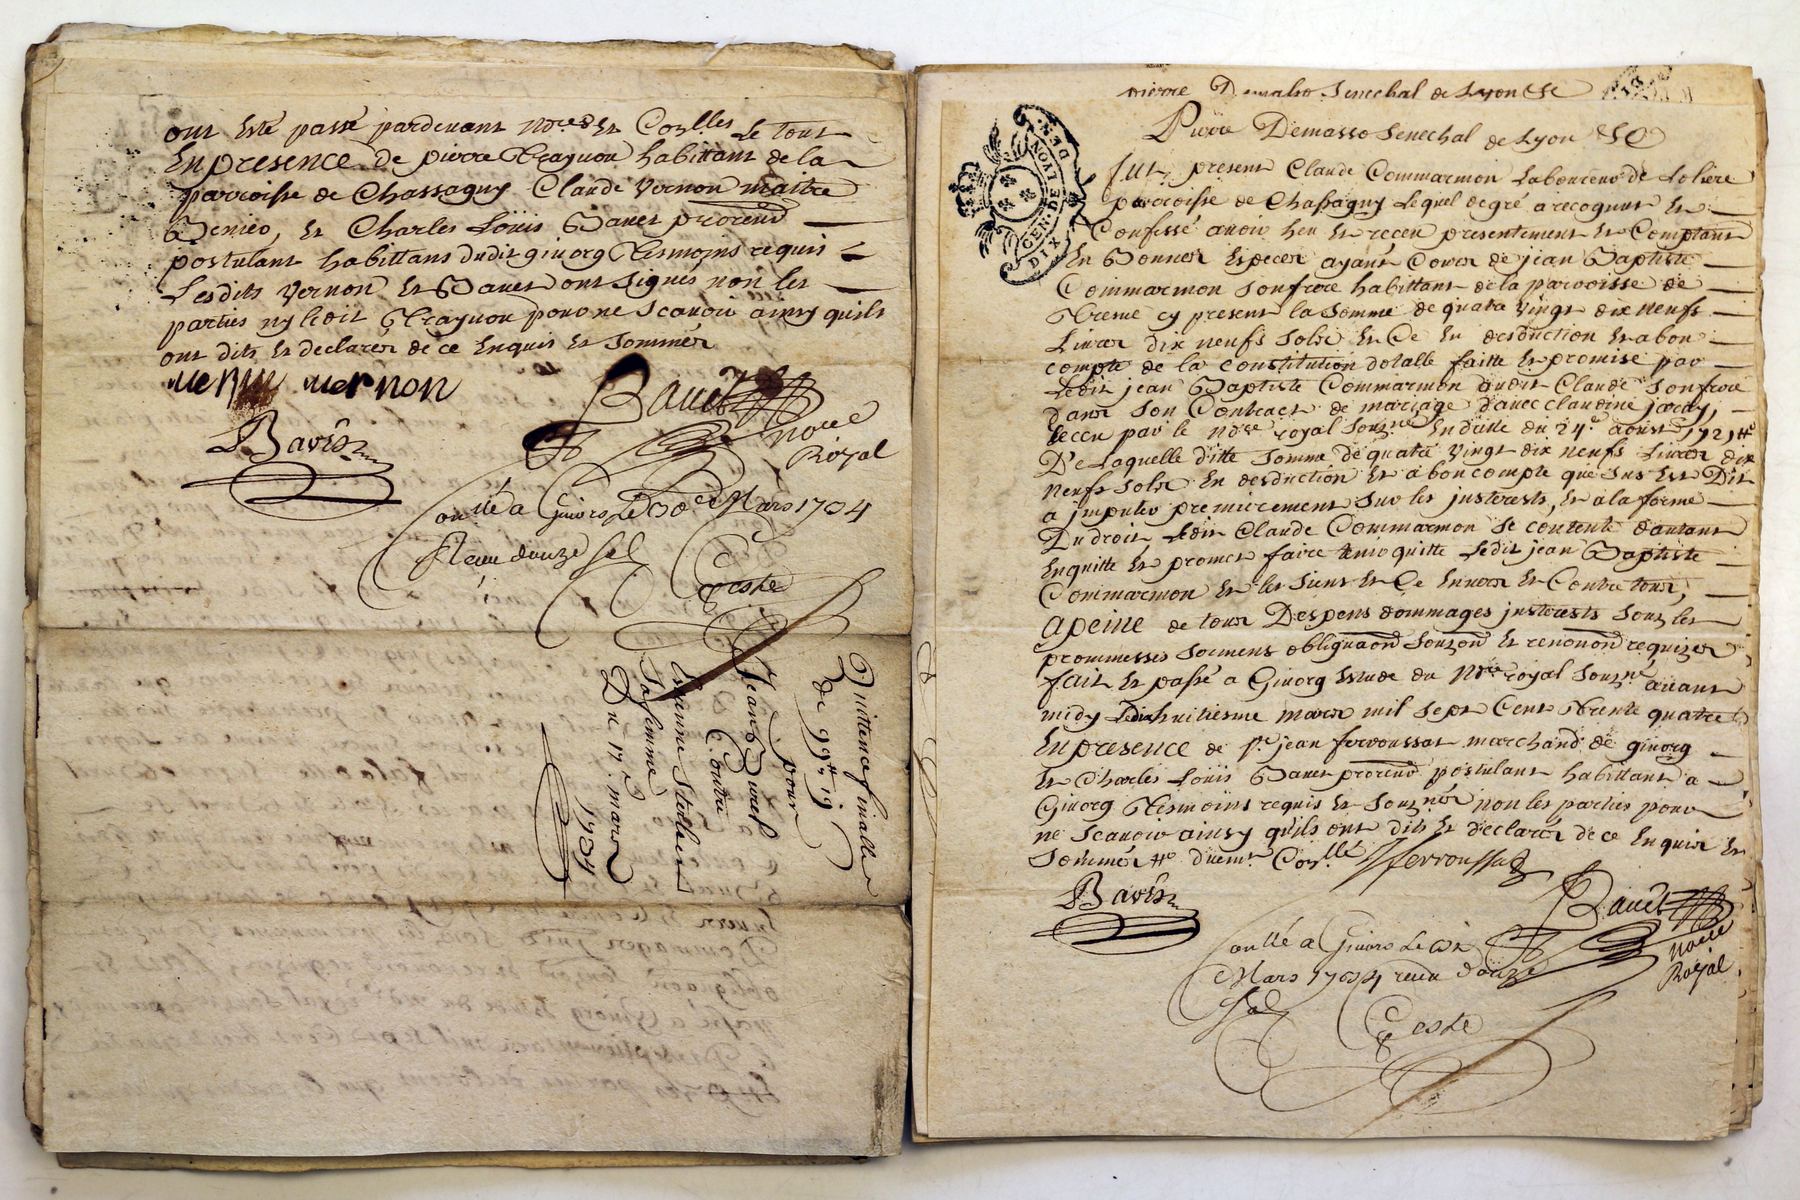 ont Esté passé pardevant No.res Et Con.lles Le tout
En presence de pierre Traynou habittant de la
parroisse de Chassagny Claude vernon maitre
Et Charles Loüis Bauet
postulant habittans dudit givorg Tesmoins requis
Lesdits vernon Et Bauet ont Signés non les
parties ny ledit Traynou pour ne Scavoir ainsy quils
ont dits Et declarer de ce Enquis Et Sommér
vernon
Bauet
Noe.re
Royal
Bavet
Con.llé a Givors Le 30e Mars 1734
Receu douze sol
Ceste
Quittence finalle
de 99.tt 19
pour
Jean Burel
Contre
Estienne
Sa femme
Du 17.e mars
1734
Pierre Demasso Senechal de Lyon &c
Pierre Demasso Senechal de Lyon &c
GEN. DE LYON
DIX DEN.
fut present Claude Commarmon Laboureur de Loliere
parroisse de Chassagny Lequel de gré a recognut Et
Confessé avoir heu Et receu presentement Et Comptant
En Bonner Especer ayant Courr de jean Baptiste
Commarmon Son frere habittant de la parroisse de
Treme cy present la Somme de quatre vingt dix neufs
Livrer dix neufs Solr Et Ce En desduction Et a bon
compte de la Constitution dotalle faitte Et promise par
Ledit jean Baptiste Commarmon audit Claude Son frere
danr Son Contract de mariage d'avec claudine jaray,
receu par le No.re royal Souz.né En datte du 24.e aoust 1721
De Laquelle ditte Somme de quatre vingt dix neufs Livrer dix
neufs Solr En desduction Et a bon compte que Sus Est Dit
a jmputer premierement Sur les justerests, Et a la forme
Du droit Ledit Claude Commarmon Se contente d'autant
En quitte Et promet faire tenir quitte Ledit jean Baptiste
Commarmon Et les Siens Et Ce Enverr Et Contre tous,
a peine de tous Despens dommages justerests Souz les
prommesses Sermens obligaôn Souzôn Et renonôn requizer
fait Et passé a Givorg Estude du No.re royal Souz.né avant
midy Ledixhuitiesme marr mil Sept Cent Trente quatre
En presence de S.r jean ferroussat marchand de givorg
Et Charles Loüis Bauet postulant habittant a
Givorg Tesmoins requis Et Souz.nér non les parties pour
ne Scavoir ainsy qu'ils ont dits Et declarér de ce Enquir Et
Sommér Con.llé
ferroussat
Bavet
Bauet
Noe.re
Royal
Con.llé a Givors Le
Mars 1734 receu douze
Sol
Ceste